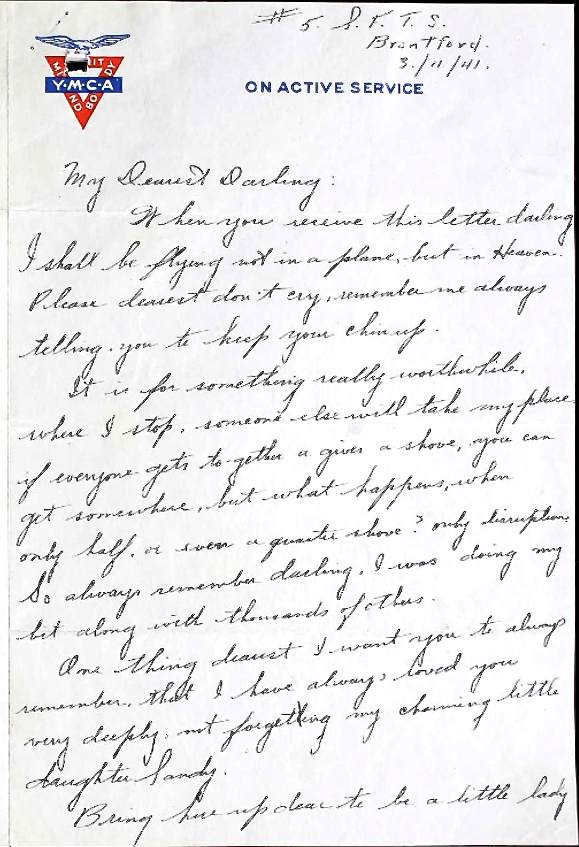 # 5. S. F. T. S.
Brantford.
3/11/41.
SPIRIT
MIND
BODY
Y·M·C·A
ON ACTIVE SERVICE
My Dearest Darling:
When you receive this letter darling
I shall be flying not in a plane, but in Heaven.
Please dearest don't cry, remember me always
telling you to keep your chin up.
It is for something really worthwhile,
where I stop, someone else will take my place
if everyone gets to-gether a gives a shove, you can
get somewhere, but what happens, when
only half, or even a quarter shove? only disruption.
So always remember darling, I was doing my
bit along with thousands of others.
One thing dearest I want you to always
remember, that I have always loved you
very deeply, not forgetting my charming little
daughter Sandy.
Bring her up dear to be a little lady